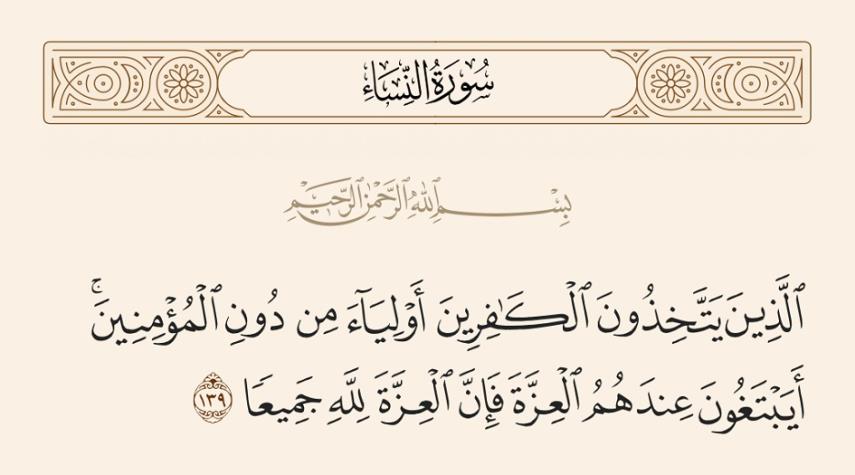 سُورَةُ النِّسَاءِ
بِسْمِ ٱللَّهِ ٱلرَّحْمَٰنِ ٱلرَّحِيمِ
ٱلَّذِينَ يَتَّخِذُونَ ٱلْكَٰفِرِينَ أَوْلِيَآءَ مِن دُونِ ٱلْمُؤْمِنِينَۚ
أَيَبْتَغُونَ عِندَهُمُ ٱلْعِزَّةَ فَإِنَّ ٱلْعِزَّةَ لِلَّهِ جَمِيعًا ١٣٩